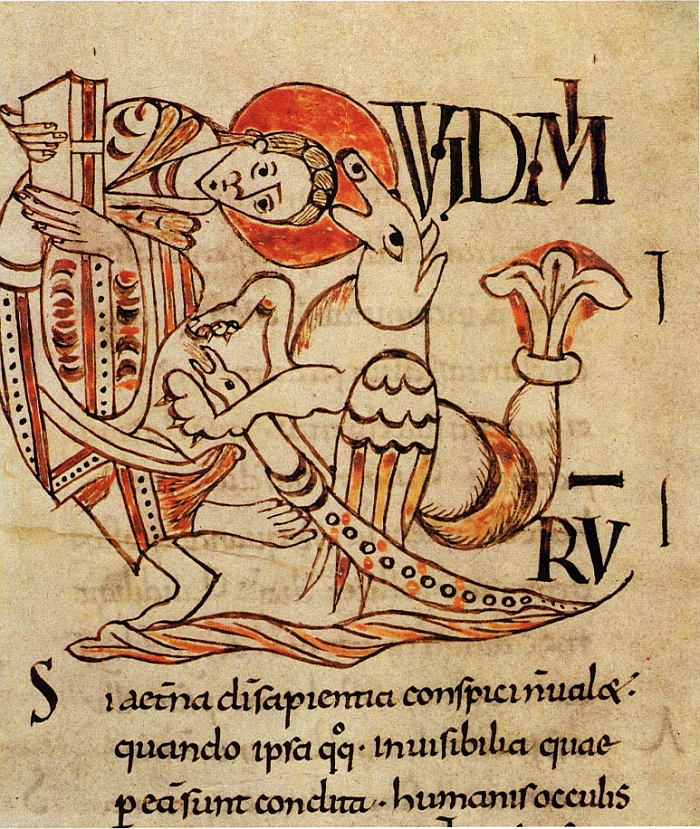 QVIDMI
RV̄
Si aet̄na dī sapientia conspici n̄ ualet·
quando ipsa qͦq· inuisibilia quae
p eā sunt condita · humanis occulis